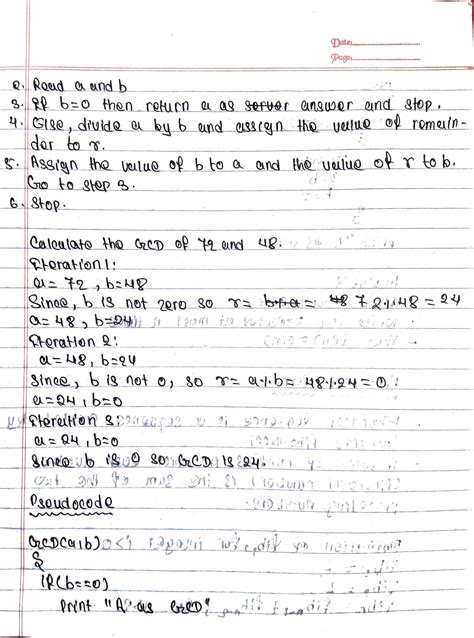 Date:
Page:
2. Read a and b
3. If b=0 then return a as server answer and stop.
4. Else, divide a by b and assign the value of remain-
der to r.
5. Assign the value of b to a and the value of r to b.
Go to step 3.
6. Stop.
Calculate the GCD of 72 and 48.
Iteration 1:
a = 72, b=48
Since, b is not zero so r= b%a = 48 72%48 = 24
a=48, b=24
Iteration 2:
a=48, b=24
Since, b is not 0, so r= a%b = 48%24=0
a=24, b=0
Iteration 3:
a=24, b=0
Since b is 0 so GCD is 24.
Pseudocode
GCD(a,b)
{
if(b==0)
Print "A as GCD"